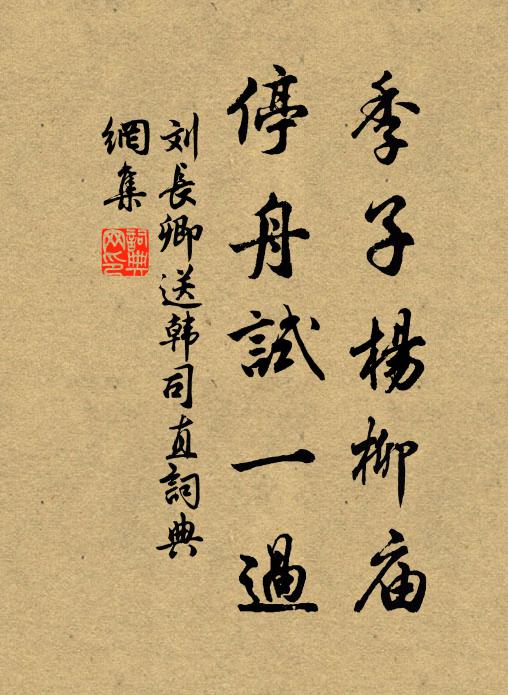 季子楊柳庙
停舟試一過
刘長卿送韩司直詞典
網集
詞典
网印